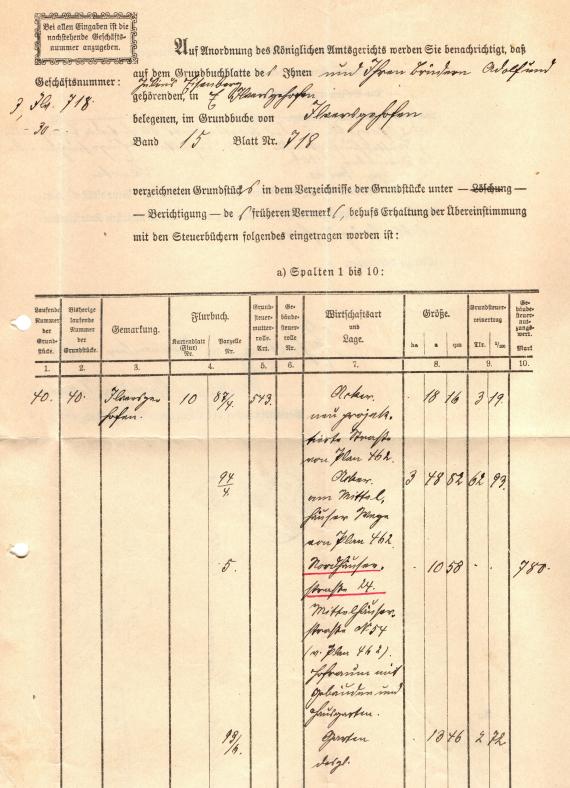 Bei allen Eingaben ist die
nachstehende Geschäfts-
nummer anzugeben.
Geschäftsnummer:
718.
-30-
Auf Anordnung des Königlichen Amtsgerichts werden Sie benachrichtigt, daß
auf dem Grundbuchblatte des Ihnen und Ihren Brüdern Adolf und
Julius
gehörenden, in E. Ilversgehofen
belegenen, im Grundbuche von Ilversgehofen
Band 15 Blatt Nr. 718
verzeichneten Grundstücks in dem Verzeichnisse der Grundstücke unter — Löschung —
— Berichtigung — des früheren Vermerks, behufs Erhaltung der Übereinstimmung
mit den Steuerbüchern folgendes eingetragen worden ist:
a) Spalten 1 bis 10:
Laufende Nummer der Grund-stücke. Bisherige laufende Nummer der Grundstücke. Gemarkung. Flurbuch. Kartenblatt (Flur) Nr. Parzelle Nr. Grund-steuer-mutter-rolle. Art. Ge-bäude-steuer-rolle. Nr. Wirtschaftsart und Lage. Größe. ha a qm Grundsteuer-reinertrag Tlr. 1/100 Gebäude-steuer-nut-zungs-wert. Mark
1. 2. 3. 4. 5. 6. 7. 8. 9. 10.
40. 40. Ilversge- 10 87/4. 543. Acker. · 18 16 3 19.
hofen. neu projek-
tierte Straße
von Plan 462.
94/4. Acker. 3 48 82 62 93.
am Mittel-
häuser Wege
von Plan 462.
5. Nordhäuser- · 10 58 - · 780.
straße 24.
Mittelhäuser-
straße N. 54
(v. Plan 462).
Hofraum mit
Gebäuden und
Hausgarten.
Garten · 13 46 2 72
desgl.